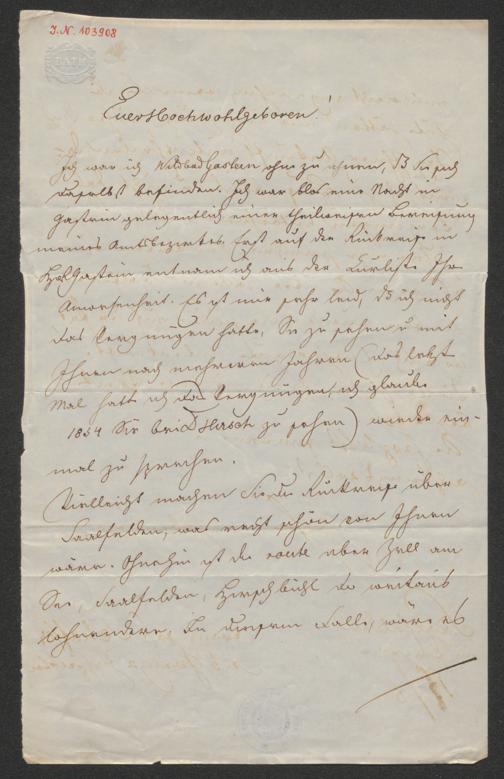 I.N. 103908
BATH
Euer Hochwohlgeboren!
Ich war in Wildbad Gastein ohne zu ahnen, dß Sie sich
daselbst befinden. Ich war blos eine Nacht in
Gastein gelegentlich einer theilweisen Bereisung
meines Amtsbezirkes. Erst auf der Rückreise in
Hof Gastein entnam ich aus der Kurliste Ihre
Anwesenheit. Es ist mir sehr leid, dß ich nicht
das Vergnügen hatte, Sie zu sehen u mit
Ihnen nach mehreren Jahren (das letzte
Mal hatte ich das Vergnügen, ich glaube
1854 Sie bei Hirsch zu sehen) wieder ein-
mal zu sprechen.
Vielleicht machen Sie die Rückreise über
Saalfelden, was recht schön von Ihnen
wäre. Ohnehin ist die route über Zell am
See, Saalfelden, Hirschbichl die weitaus
lohnendere. In diesem Falle, wäre es